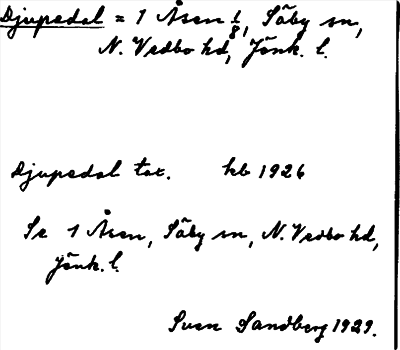 Djupedal = 1 Åsen 1/8, Säby sn,
N. Vedbo hd, Jönk. l.
Djupedal tax. kb 1926
Se 1 Åsen, Säby sn, N. Vedbo hd,
Jönk. l.
Sven Sandberg 1929.